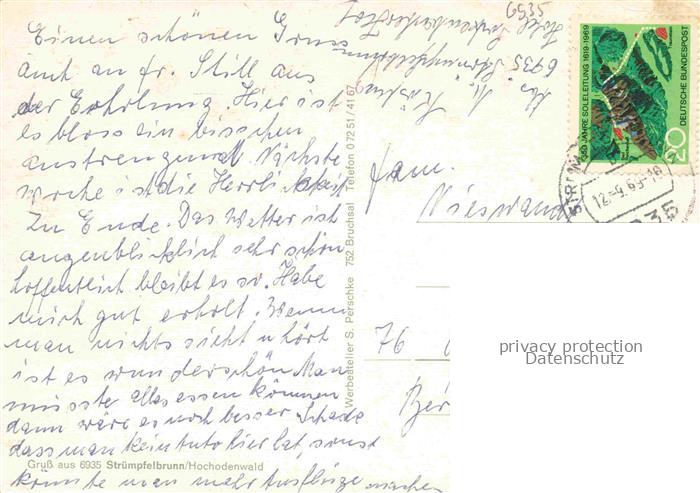 Einen schönen Gruss
auch an fr. Still aus
der Erholung. Hier ist
es bloss ein bisschen
anstrengend. Nächste
woche ist die Herrlichkeit
Zu Ende. Das Wetter ist
augenblicklich sehr schön
hoffentlich bleibt es so. Habe
mich gut erholt. Wenn
man nichts sieht u hört
ist es wunderschön Man
müsste alles essen können
dann wäre es noch besser Schade
dass man kein Auto hier hat, sonst
könnte man mehr Ausflüge machen
Gruß aus 6935 Strümpfelbrunn/Hochodenwald
6935
Hotel
6935 Strümpfelbrunn
Werbeatelier S. Perschke 752 Bruchsal Telefon 0 72 51 / 41 67
350 JAHRE SOLELEITUNG 1619-1969
DEUTSCHE BUNDESPOST
20
STRÜM
12.-9.69-18
6935
Fam.
Nieswand
76
Ber
privacy protection
Datenschutz